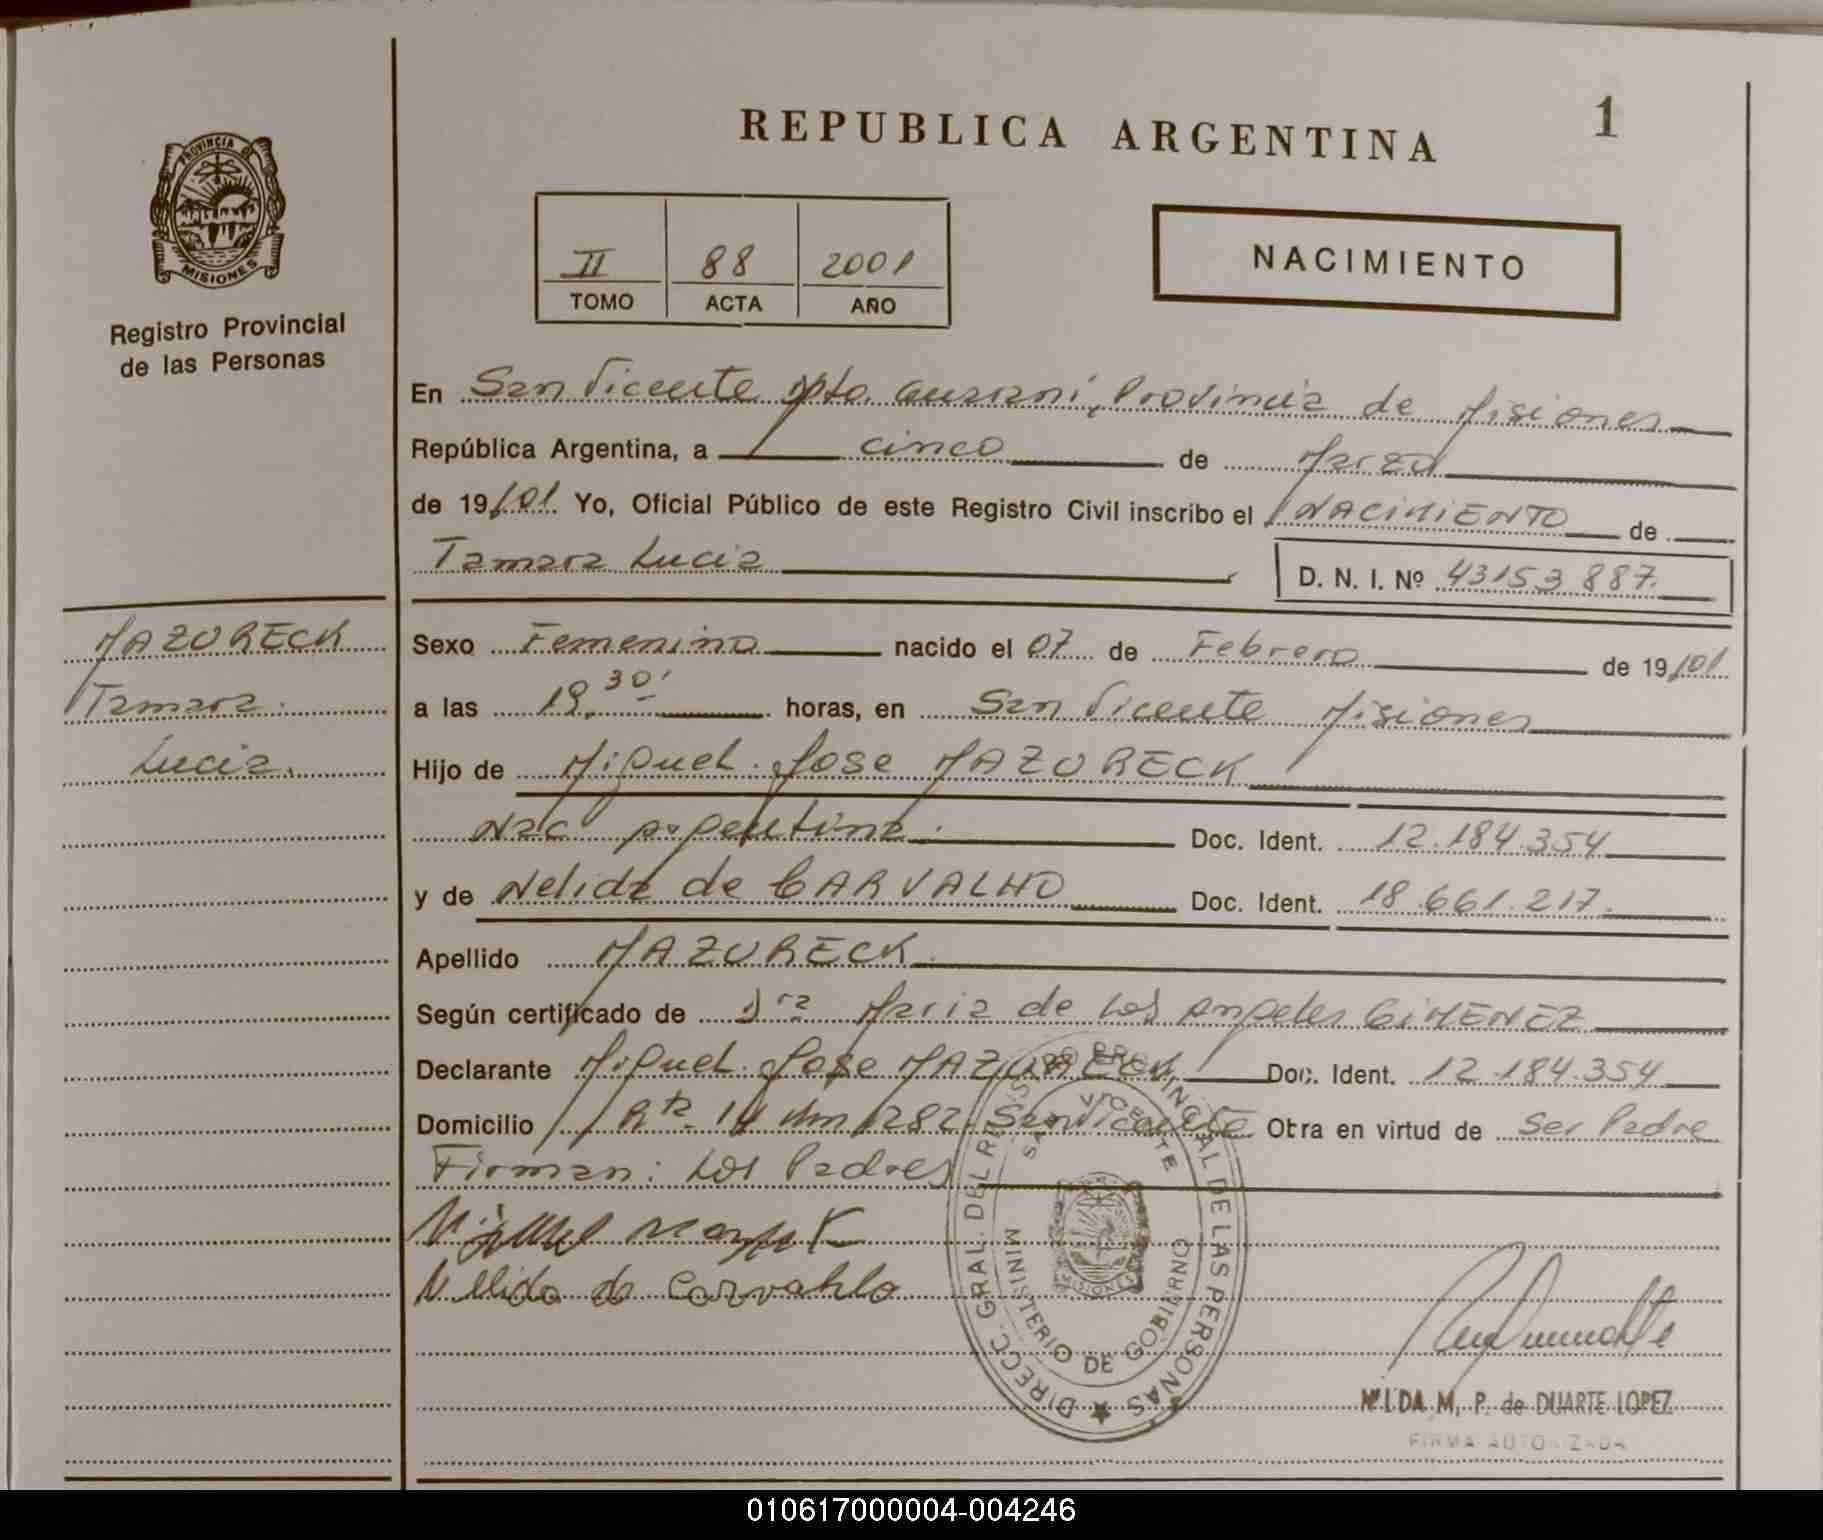 REPUBLICA ARGENTINA
1
PROVINCIA DE
MISIONES
Registro Provincial
de las Personas
II 88 2001
TOMO ACTA AÑO
NACIMIENTO
En San Vicente Dpto. Guaraní, Provincia de Misiones
República Argentina, a cinco de Marzo
de 19/01. Yo, Oficial Público de este Registro Civil inscribo el NACIMIENTO de
Tamara Lucia
D. N. I. Nº 43153887.
MAZURECK
Tamara.
Lucia.
Sexo Femenino nacido el 07 de Febrero de 19/01.
a las 19,30' horas, en San Vicente Misiones
Hijo de Miguel Jose MAZURECK
Nac Argentina. Doc. Ident. 12.184.354
y de Nelida de CARVALHO Doc. Ident. 18.661.217.
Apellido MAZURECK.
Según certificado de Dra Maria de Los Angeles GIMENEZ
Declarante Miguel Jose MAZURECK Doc. Ident. 12.184.354
Domicilio Rta. 14 Km 1282 San Vicente Otra en virtud de Ser Padre
Firman: Los Padres
Nelida de Carvahlo
DIRECC. GRAL. DEL REGISTRO PROVINCIAL DE LAS PERSONAS
SAN VICENTE
MISIONES
MINISTERIO DE GOBIERNO
NILDA M. P. de DUARTE LOPEZ
FIRMA AUTORIZADA
010617000004-004246